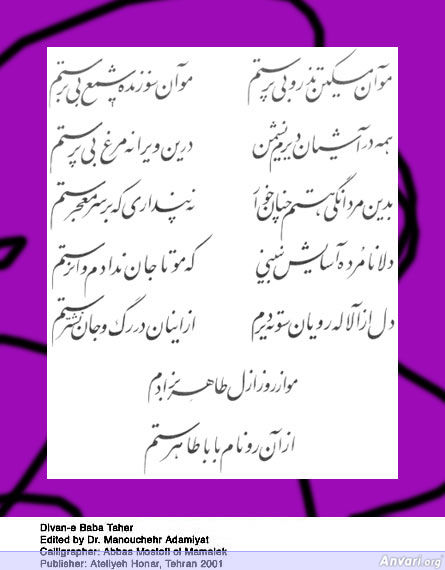 موآن مسکین تذرو بی پرستم موآن سوزنده شمع بی
همه در آشیان دیرم نشیمن درین ویرانه مرغ بی پرستم
بدین مردانگی هستم چنان خوار نه پنداری که بر سر معجرستم
دلا نامرده آسایش نبینی که مو تا جان ندادم وانرستم
دل از آلاله رویان سوته دیرم از اینان در رگ و جان نشترستم
مو از روز ازل طاهر بزادم
از آن رو نام بابا طاهرستم
Divan-e Baba Taher
Edited by Dr. Manouchehr Adamiyat
Calligrapher: Abbas Mostofi ol Mamalek
Publisher: Ateliyeh Honar, Tehran 2001
Anvari.org